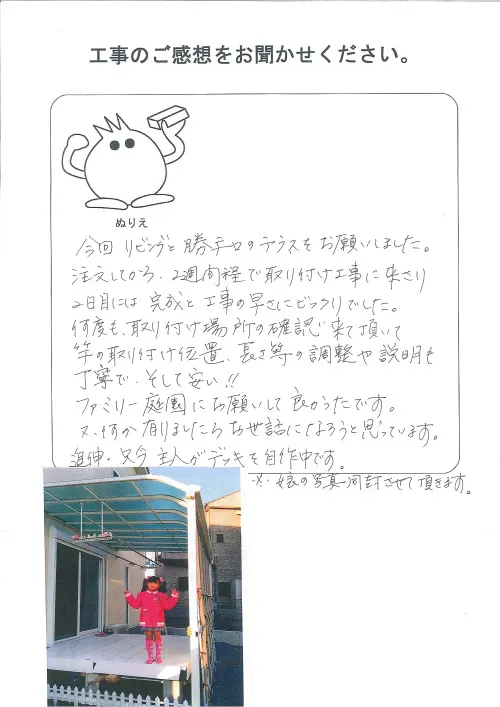 工事のご感想をお聞かせください。
ぬりえ
今回 リビングと勝手口のテラスをお願いしました。
注文してから、2週間程で取り付け工事に来さり
2日目には完成と工事の早さにビックリでした。
何度も、取り付け場所の確認に来て頂いて
竿の取り付け位置、長さ等の調整や説明も
丁寧で、そして安い!!
ファミリー庭園にお願いして良かったです。
又、何か有りましたらお世話になろうと思っています。
追伸・只今 主人がデッキを自作中です。
※娘の写真同封させて頂きます。